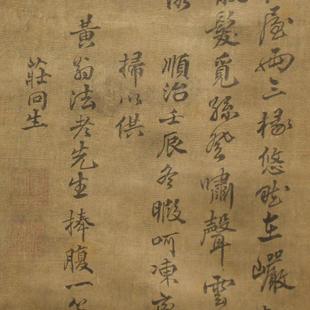 屋两三椽悠然在巘
髮觅孫登嘯聲雲
順治壬辰冬暇呵凍
掃以供
黃翁法老先生捧腹一
莊冋生